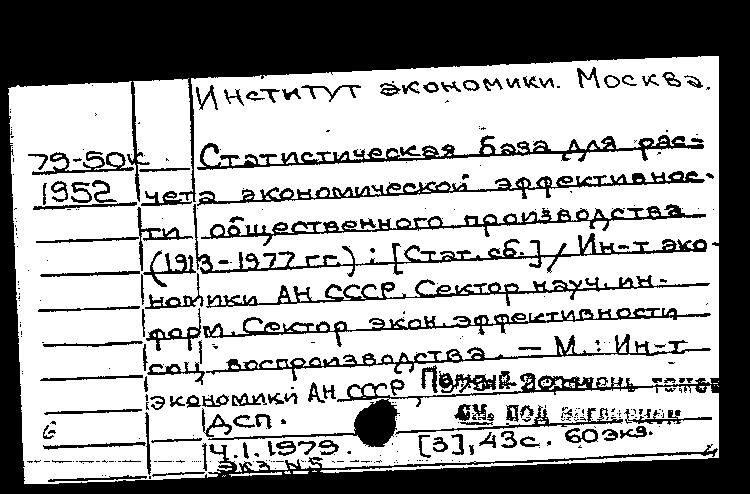 Институт экономики. Москва.
79-50к Статистическая база для рас-
1952 чета экономической эффективнос-
ти общественного производства
(1913-1977 гг.) : [Стат. сб.] / Ин-т эко-
номики АН СССР. Сектор науч. ин-
форм. Сектор экон. эффективности
соц. воспроизводства. — М. : Ин-т
экономики АН СССР, Полный перечень томов
см. под заглавием
6 ДСП.
4.1.1979. [3], 43с. 60 экз.
Экз N5